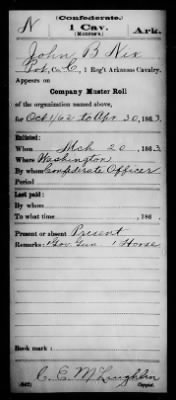 (Confederate.)
N 1 Cav. Ark.
(Monroe's.)
John B Nix
Pvt, Co. C, 1 Reg't Arkansas Cavalry.
Appears on
Company Muster Roll
of the organization named above,
for Oct 1/62 to Apr. 30, 1863.
Enlisted:
When Mch 20, 1863.
Where Washington
By whom Confederate Officer
Period
Last paid:
By whom
To what time , 186 .
Present or absent Present
Remarks: 1 Gov. Gun 1 Horse
Book mark:
C. E. McLaughlin
(642) Copyist.